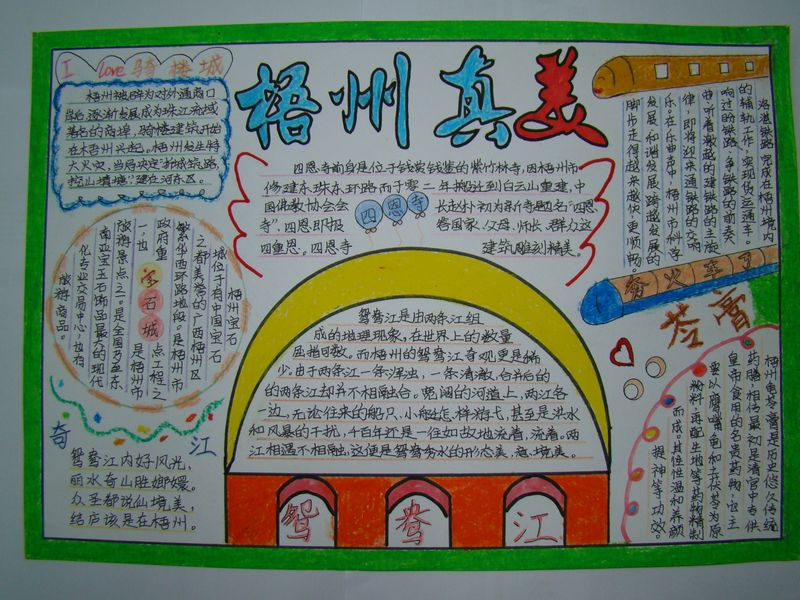 I love 骑楼城
梧州被辟为对外通商口
岸后逐渐发展成为珠江流域
著名的商埠，骑楼建筑开始
在梧州兴起。梧州发生特
大火灾，当局决定"拆城筑路，
挖山填塘"建在河东区。
梧州真美
四恩寺前身是位于钱鉴的紫竹林寺，因梧州市
修建东环路而于
二年搬迁到白云山重建，中
国佛教协会会
长赵朴初为新寺题名"四恩
寺"，四恩即报
答国家、父母、师长、群众这
四重恩。四恩寺
建筑雕刻精美。
四恩寺
洛湛铁路完成在梧州境内
的铺轨工作，实现货运通车。
响过盼铁路、争铁路的前奏
曲，听着激越的建铁路的主旋
律，即将迎来通铁路的交响
乐。在乐曲声中，梧州市科学
发展、和谐发展、跨越发展的
脚步走得越来越快、更顺畅。
火车
梧州宝石
城位于有中国宝石
之都美誉的广西梧州区
繁华西环路地段。是梧州市
政府重
点工程之
一，也
是梧州市
旅游景点之一。是全国乃至东
南亚宝玉石饰品最大的现代
化专业交易中心，拉构
旅游商品。
宝石城
鸳鸯江是由两条江组
成的地理现象，在世界上的数量
屈指可数。而梧州的鸳鸯江奇观更是稀
少。由于两条江一条浑浊，一条清澈，合并后的
的两条江却并不相融合。宽阔的河道上，两江各
一边，无论往来的船只、小艇怎样游弋，甚至是洪水
和风暴的干扰，千百年还是一任如故地流着，流着。两
江相遇不相融，这便是鸳鸯秀水的形态美、意境美。
鸳鸯江
奇江
鸳鸯江内好风光，
丽水奇山胜嫏嬛。
众圣都说仙境美，
结庐该是在梧州。
苓膏
梧州龟苓膏是历史悠久传统
药膳，相传最初是清宫中专供
皇帝食用的名贵药物，它主
要以鹰嘴龟和土茯苓为原
料，再配生地等药物精制
而成。其性性温和养颜
提神等功效。